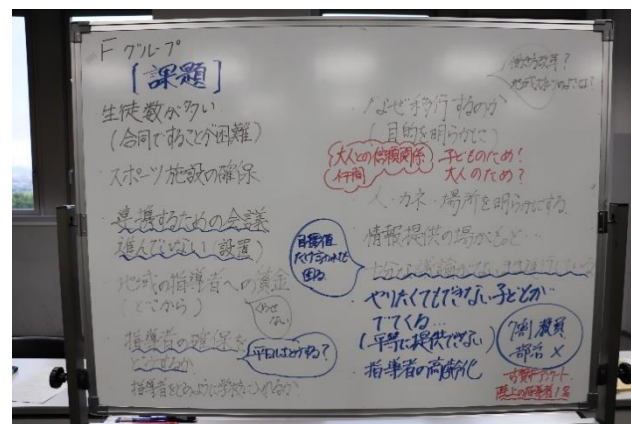 Fグループ
[課題]
生徒数が多い
(合同ですることが困難)
・スポーツ施設の確保
・連携するための会議
進んでいない(設置)
・地域の指導者への賃金
(どこから)
・指導者の確保を
どうするか
平日はどうする?
指導者をどのように学校に
働き方改革?
・なぜ移行するのか
(目的を明らかに)
大人との信頼関係
時間
子どものため!
大人のため?
人・カネ・場所を明らかにする
・情報提供の場がもっと…
目標値
だけ言われても
困る
・やりたくてもできない子どもが
でてくる…
(平等に提供できない)
・指導者の高齢化
7割 教員
部活 ×
アンケート
陸上の指導者1名